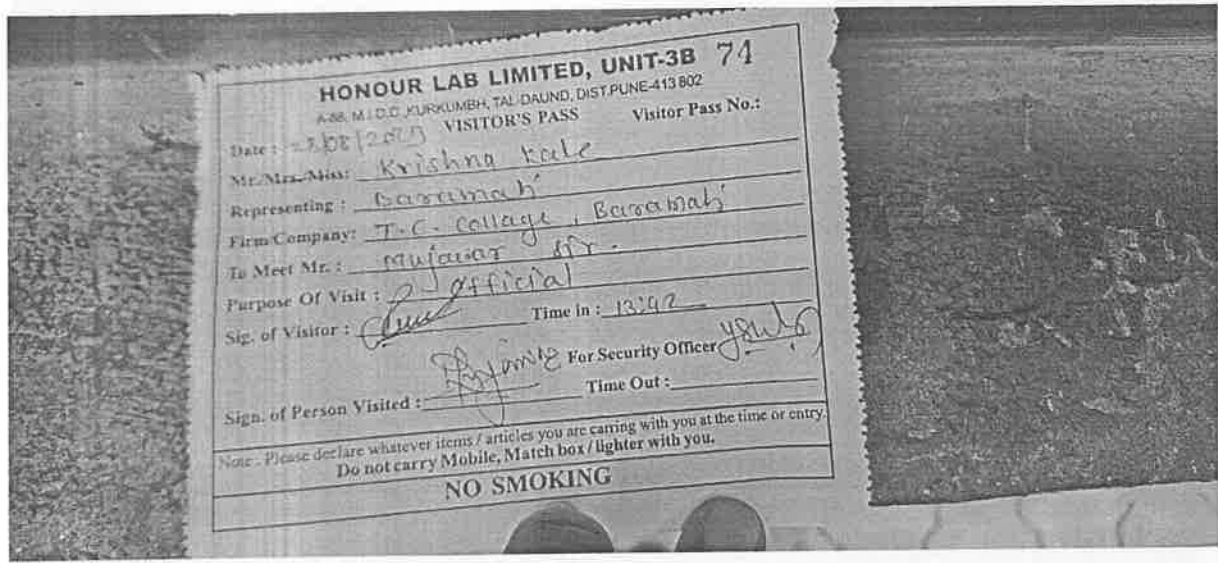 HONOUR LAB LIMITED, UNIT-3B 74
A-88, M.I.D.C., KURKUMBH, TAL-DAUND, DIST.PUNE-413 802
VISITOR'S PASS Visitor Pass No.:
Date :
Mr./Mrs./Miss: Krishna Kale
Representing : Baramati
Firm/Company: T.C. Collage, Baramati
To Meet Mr. : Mujawar Sir.
Purpose Of Visit : Official
Sig. of Visitor : Time in :
For Security Officer
Sign. of Person Visited : Time Out :
Note . Please declare whatever items / articles you are carring with you at the time or entry.
Do not carry Mobile, Match box / lighter with you.
NO SMOKING